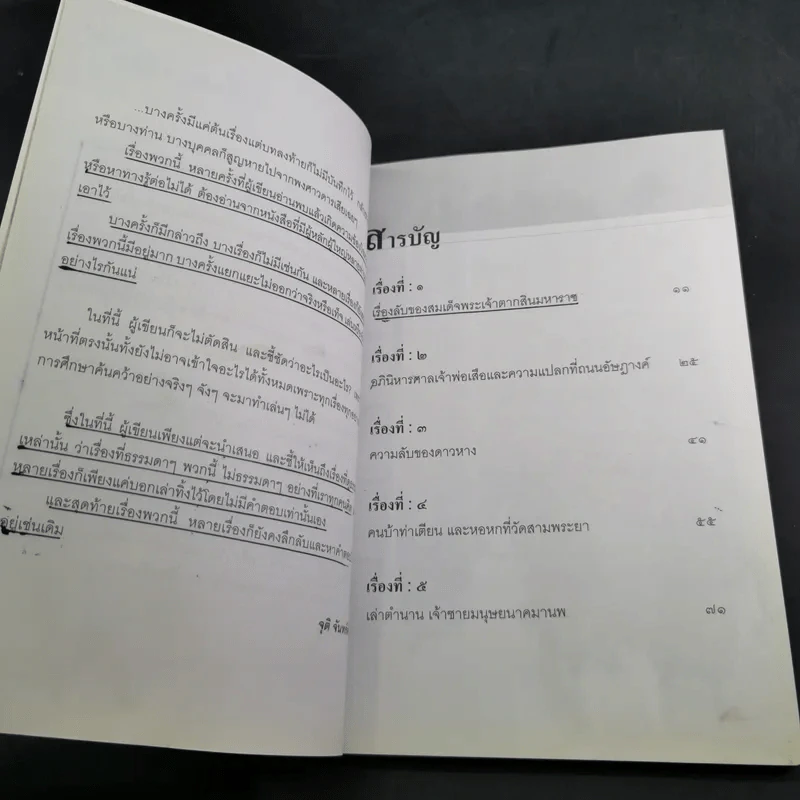 ...บางครั้งมีแค่ต้นเรื่องแต่บทลงท้ายก็ไม่มีบันทึกไว้
หรือบางท่าน บางบุคคลก็สูญหายไปจากพงศาวดารเสียเฉยๆ
เรื่องพวกนี้ หลายครั้งที่ผู้เขียนอ่านพบแล้วเกิดความ
หรือหาทางรู้ต่อไม่ได้ ต้องอ่านจากหนังสือที่มีผู้หลักผู้ใหญ่
เอาไว้
บางครั้งก็มีกล่าวถึง บางเรื่องก็ไม่มีเช่นกัน และหลายเรื่อง
เรื่องพวกนี้มีอยู่มาก บางครั้งแยกแยะไม่ออกว่าจริงหรือเท็จ
อย่างไรกันแน่
ในที่นี้ ผู้เขียนก็จะไม่ตัดสิน และชี้ชัดว่าอะไรเป็นอะไร
หน้าที่ตรงนั้นทั้งยังไม่อาจเข้าใจอะไรได้ทั้งหมดเพราะทุกเรื่อง
การศึกษาค้นคว้าอย่างจริงๆ จังๆ จะมาทำเล่นๆ ไม่ได้
ซึ่งในที่นี้ ผู้เขียนเพียงแต่จะนำเสนอ และชี้ให้เห็นถึงเรื่อง
เหล่านั้น ว่าเรื่องที่ธรรมดาๆ พวกนี้ ไม่ธรรมดาๆ อย่างที่เราทุกคน
หลายเรื่องก็เพียงแค่บอกเล่าทิ้งไว้โดยไม่มีคำตอบเท่านั้นเอง
และสุดท้ายเรื่องพวกนี้ หลายเรื่องก็ยังคงลึกลับและหาคำ
อยู่เช่นเดิม
จุติ
สารบัญ
เรื่องที่ : ๑
เรื่องลับของสมเด็จพระเจ้าตากสินมหาราช ๑๑
เรื่องที่ : ๒
อภินิหารศาลเจ้าพ่อเสือและความแปลกที่ถนนอัษฎางค์ ๒๕
เรื่องที่ : ๓
ความลับของดาวหาง ๔๑
เรื่องที่ : ๔
คนบ้าท่าเตียน และหอหกที่วัดสามพระยา ๕๕
เรื่องที่ : ๕
เล่าตำนาน เจ้าชายมนุษยนาคมานพ ๗๑